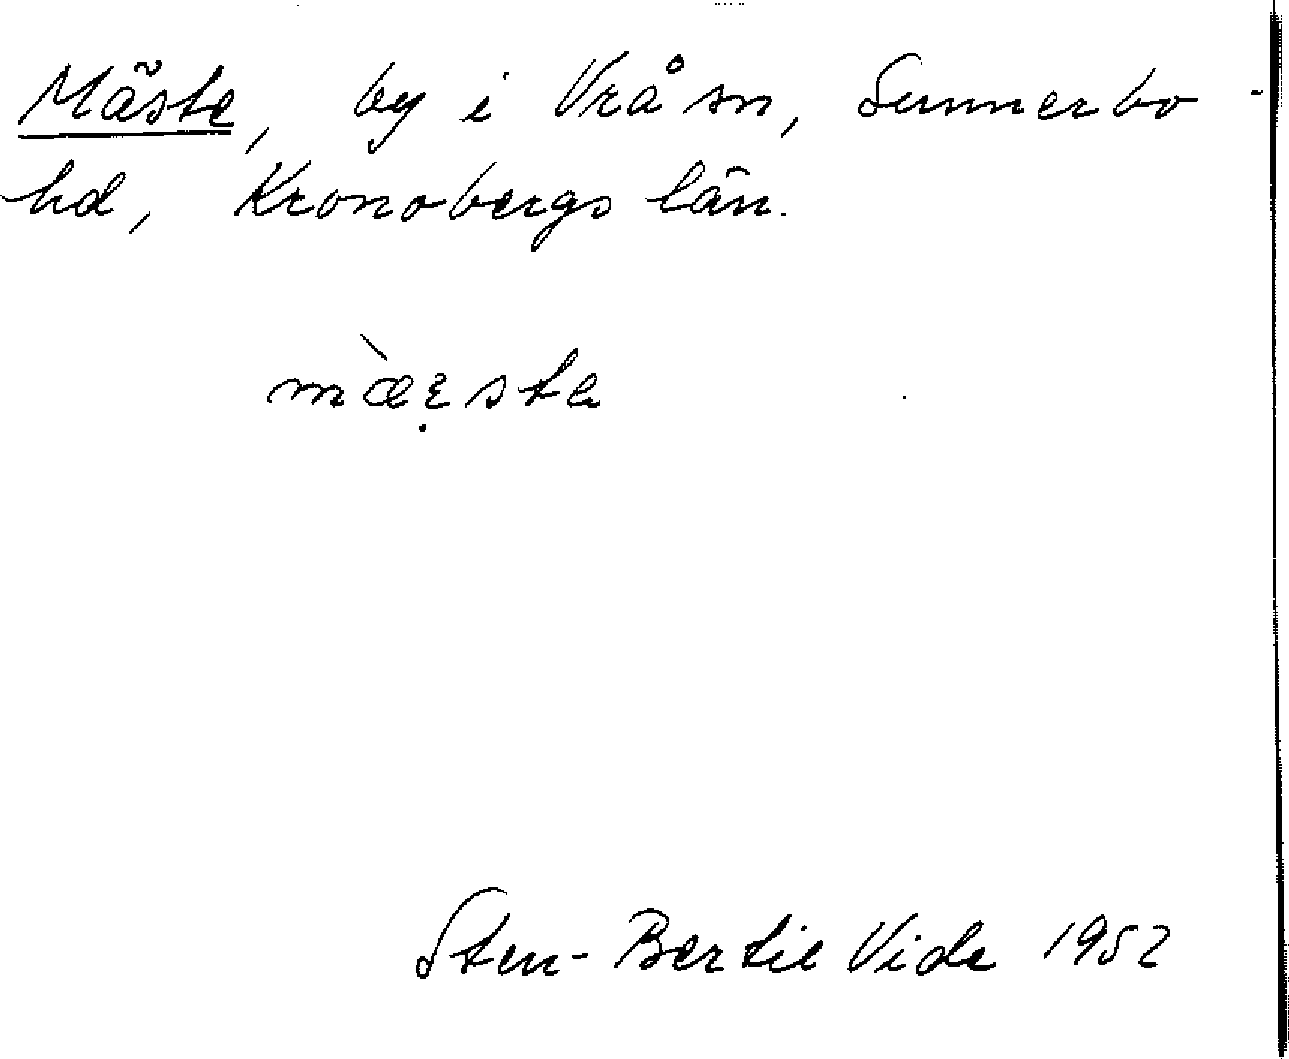 Mäste, by i Vrå sn, Sunnerbo-
hd, Kronobergs län.
mæ̀ɛ̣ste
Sten-Bertil Vide 1952